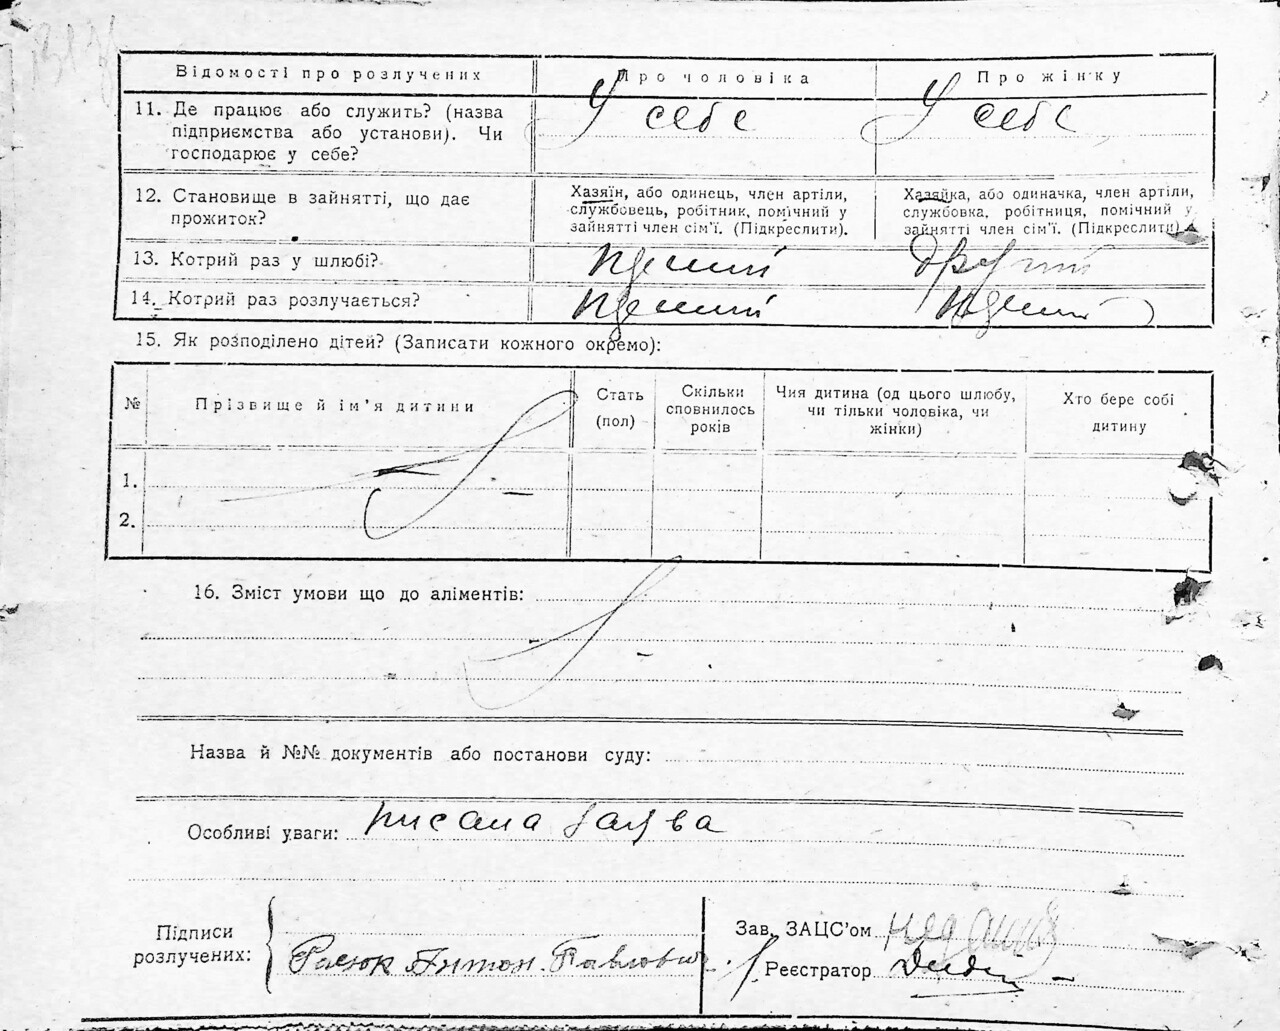 Відомості про розлучених Про чоловіка Про жінку
11. Де працює або служить? (назва
підприємства або установи). Чи
господарює у себе?
У себе У себе
12. Становище в зайнятті, що дає
прожиток?
Хазяїн, або одинець, член артіли,
службовець, робітник, помічний у
зайнятті член сім'ї. (Підкреслити).
Хазяйка, або одиначка, член артіли,
службовка, робітниця, помічний у
зайнятті член сім'ї. (Підкреслити)
13. Котрий раз у шлюбі? перший другий
14. Котрий раз розлучається? перший перший
15. Як розподілено дітей? (Записати кожного окремо):
№ Прізвище й ім'я дитини
Стать
(пол)
Скільки
сповнилось
років
Чия дитина (од цього шлюбу,
чи тільки чоловіка, чи
жінки)
Хто бере собі
дитину
1.
2.
16. Зміст умови що до аліментів:
Назва й №№ документів або постанови суду:
Особливі уваги: писана заява
Підписи
розлучених:
Антон Павлович
Зав. ЗАЦС'ом
Реєстратор